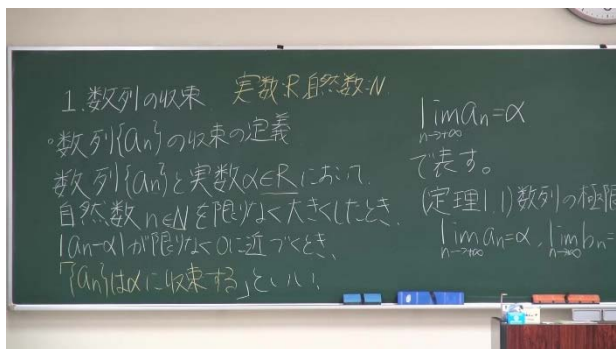 1. 数列の収束 実数:R 自然数:N
・数列{an}の収束の定義
数列{an}と実数α∈Rにおいて
自然数n∈Nを限りなく大きくしたとき、
|an-α|が限りなく0に近づくとき、
「{an}はαに収束する」といい、
lim an=α
n→+∞
で表す。
(定理1.1)数列の極限
lim an=α, lim bn=
n→+∞ n→∞